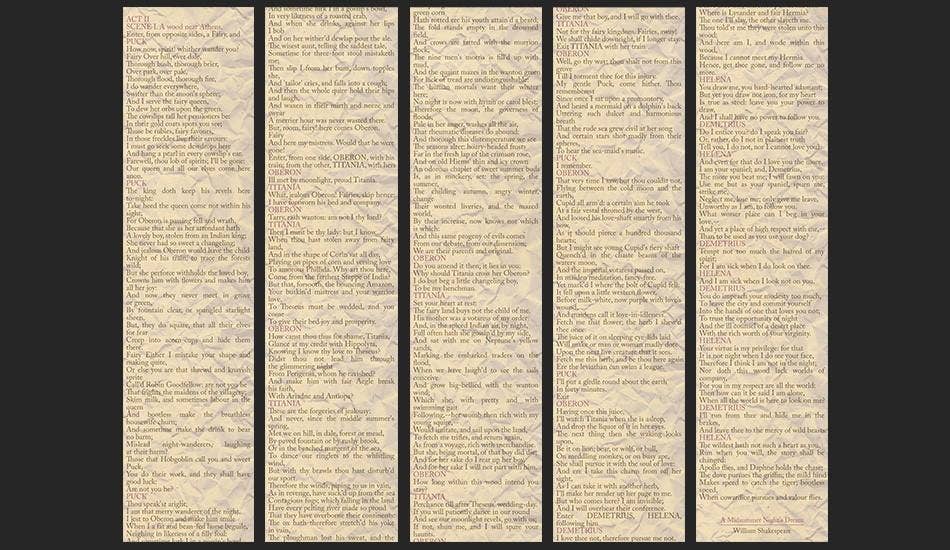 ACT II
SCENE I. A wood near Athens.
Enter, from opposite sides, a Fairy, and
PUCK
How now, spirit! whither wander you?
Fairy Over hill, over dale,
Thorough bush, thorough brier,
Over park, over pale,
Thorough flood, thorough fire,
I do wander everywhere,
Swifter than the moon's sphere;
And I serve the fairy queen,
To dew her orbs upon the green.
The cowslips tall her pensioners be:
In their gold coats spots you see;
Those be rubies, fairy favours,
In those freckles live their savours:
I must go seek some dewdrops here
And hang a pearl in every cowslip's ear.
Farewell, thou lob of spirits; I'll be gone:
Our queen and all our elves come here
anon.
PUCK
The king doth keep his revels here
to-night:
Take heed the queen come not within his
sight;
For Oberon is passing fell and wrath,
Because that she as her attendant hath
A lovely boy, stolen from an Indian king;
She never had so sweet a changeling;
And jealous Oberon would have the child
Knight of his train, to trace the forests
wild;
But she perforce withholds the loved boy,
Crowns him with flowers and makes him
all her joy:
And now they never meet in grove
or green,
By fountain clear, or spangled starlight
sheen,
But, they do square, that all their elves
for fear
Creep into acorn-cups and hide them
there.
Fairy Either I mistake your shape and
making quite,
Or else you are that shrewd and knavish
sprite
Call'd Robin Goodfellow: are not you he
That frights the maidens of the villagery;
Skim milk, and sometimes labour in the
quern
And bootless make the breathless
housewife churn;
And sometime make the drink to bear
no barm;
Mislead night-wanderers, laughing
at their harm?
Those that Hobgoblin call you and sweet
Puck,
You do their work, and they shall have
good luck:
Are not you he?
PUCK
Thou speak'st aright;
I am that merry wanderer of the night.
I jest to Oberon and make him smile
When I a fat and bean-fed horse beguile,
Neighing in likeness of a filly foal:
And sometime lurk I in a gossip's bowl,
In very likeness of a roasted crab,
And when she drinks, against her lips
I bob
And on her wither'd dewlap pour the ale.
The wisest aunt, telling the saddest tale,
Sometime for three-foot stool mistaketh
me;
Then slip I from her bum, down topples
she,
And 'tailor' cries, and falls into a cough;
And then the whole quire hold their hips
and laugh,
And waxen in their mirth and neeze and
swear
A merrier hour was never wasted there.
But, room, fairy! here comes Oberon.
Fairy
And here my mistress. Would that he were
gone!
Enter, from one side, OBERON, with his
train; from the other, TITANIA, with hers
OBERON
Ill met by moonlight, proud Titania.
TITANIA
What, jealous Oberon! Fairies, skip hence:
I have forsworn his bed and company.
OBERON
Tarry, rash wanton: am not I thy lord?
TITANIA
Then I must be thy lady: but I know
When thou hast stolen away from fairy
land,
And in the shape of Corin sat all day,
Playing on pipes of corn and versing love
To amorous Phillida. Why art thou here,
Come from the farthest Steppe of India?
But that, forsooth, the bouncing Amazon,
Your buskin'd mistress and your warrior
love,
To Theseus must be wedded, and you
come
To give their bed joy and prosperity.
OBERON
How canst thou thus for shame, Titania,
Glance at my credit with Hippolyta,
Knowing I know thy love to Theseus?
Didst thou not lead him through
the glimmering night
From Perigenia, whom he ravished?
And make him with fair Aegle break
his faith,
With Ariadne and Antiopa?
TITANIA
These are the forgeries of jealousy:
And never, since the middle summer's
spring,
Met we on hill, in dale, forest or mead,
By paved fountain or by rushy brook,
Or in the beached margent of the sea,
To dance our ringlets to the whistling
wind,
But with thy brawls thou hast disturb'd
our sport.
Therefore the winds, piping to us in vain,
As in revenge, have suck'd up from the sea
Contagious fogs; which falling in the land
Have every pelting river made so proud
That they have overborne their continents:
The ox hath therefore stretch'd his yoke
in vain,
The ploughman lost his sweat, and the
green corn
Hath rotted ere his youth attain'd a beard;
The fold stands empty in the drowned
field,
And crows are fatted with the murrion
flock;
The nine men's morris is fill'd up with
mud,
And the quaint mazes in the wanton green
For lack of tread are undistinguishable:
The human mortals want their winter
here;
No night is now with hymn or carol blest:
Therefore the moon, the governess of
floods,
Pale in her anger, washes all the air,
That rheumatic diseases do abound:
And thorough this distemperature we see
The seasons alter: hoary-headed frosts
Far in the fresh lap of the crimson rose,
And on old Hiems' thin and icy crown
An odorous chaplet of sweet summer buds
Is, as in mockery, set: the spring, the
summer,
The childing autumn, angry winter,
change
Their wonted liveries, and the mazed
world,
By their increase, now knows not which
is which:
And this same progeny of evils comes
From our debate, from our dissension;
We are their parents and original.
OBERON
Do you amend it then; it lies in you:
Why should Titania cross her Oberon?
I do but beg a little changeling boy,
To be my henchman.
TITANIA
Set your heart at rest:
The fairy land buys not the child of me.
His mother was a votaress of my order:
And, in the spiced Indian air, by night,
Full often hath she gossip'd by my side,
And sat with me on Neptune's yellow
sands,
Marking the embarked traders on the
flood,
When we have laugh'd to see the sails
conceive
And grow big-bellied with the wanton
wind;
Which she, with pretty and with
swimming gait
Following,--her womb then rich with my
young squire,--
Would imitate, and sail upon the land,
To fetch me trifles, and return again,
As from a voyage, rich with merchandise.
But she, being mortal, of that boy did die;
And for her sake do I rear up her boy,
And for her sake I will not part with him.
OBERON
How long within this wood intend you
stay?
TITANIA
Perchance till after Theseus' wedding-day.
If you will patiently dance in our round
And see our moonlight revels, go with us;
If not, shun me, and I will spare your
haunts.
OBERON
Give me that boy, and I will go with thee.
TITANIA
Not for thy fairy kingdom. Fairies, away!
We shall chide downright, if I longer stay.
Exit TITANIA with her train
OBERON
Well, go thy way: thou shalt not from this
grove
Till I torment thee for this injury.
My gentle Puck, come hither. Thou
rememberest
Since once I sat upon a promontory,
And heard a mermaid on a dolphin's back
Uttering such dulcet and harmonious
breath
That the rude sea grew civil at her song
And certain stars shot madly from their
spheres,
To hear the sea-maid's music.
PUCK
I remember.
OBERON
That very time I saw, but thou couldst not,
Flying between the cold moon and the
earth,
Cupid all arm'd: a certain aim he took
At a fair vestal throned by the west,
And loosed his love-shaft smartly from his
bow,
As it should pierce a hundred thousand
hearts;
But I might see young Cupid's fiery shaft
Quench'd in the chaste beams of the
watery moon,
And the imperial votaress passed on,
In maiden meditation, fancy-free.
Yet mark'd I where the bolt of Cupid fell:
It fell upon a little western flower,
Before milk-white, now purple with love's
wound,
And maidens call it love-in-idleness.
Fetch me that flower; the herb I shew'd
thee once:
The juice of it on sleeping eye-lids laid
Will make or man or woman madly dote
Upon the next live creature that it sees.
Fetch me this herb; and be thou here again
Ere the leviathan can swim a league.
PUCK
I'll put a girdle round about the earth
In forty minutes.
Exit
OBERON
Having once this juice,
I'll watch Titania when she is asleep,
And drop the liquor of it in her eyes.
The next thing then she waking looks
upon,
Be it on lion, bear, or wolf, or bull,
On meddling monkey, or on busy ape,
She shall pursue it with the soul of love:
And ere I take this charm from off her
sight,
As I can take it with another herb,
I'll make her render up her page to me.
But who comes here? I am invisible;
And I will overhear their conference.
Enter DEMETRIUS, HELENA,
following him
DEMETRIUS
I love thee not, therefore pursue me not.
Where is Lysander and fair Hermia?
The one I'll slay, the other slayeth me.
Thou told'st me they were stolen unto this
wood;
And here am I, and wode within this
wood,
Because I cannot meet my Hermia.
Hence, get thee gone, and follow me no
more.
HELENA
You draw me, you hard-hearted adamant;
But yet you draw not iron, for my heart
Is true as steel: leave you your power to
draw,
And I shall have no power to follow you.
DEMETRIUS
Do I entice you? do I speak you fair?
Or, rather, do I not in plainest truth
Tell you, I do not, nor I cannot love you?
HELENA
And even for that do I love you the more.
I am your spaniel; and, Demetrius,
The more you beat me, I will fawn on you:
Use me but as your spaniel, spurn me,
strike me,
Neglect me, lose me; only give me leave,
Unworthy as I am, to follow you.
What worser place can I beg in your
love,--
And yet a place of high respect with me,--
Than to be used as you use your dog?
DEMETRIUS
Tempt not too much the hatred of my
spirit;
For I am sick when I do look on thee.
HELENA
And I am sick when I look not on you.
DEMETRIUS
You do impeach your modesty too much,
To leave the city and commit yourself
Into the hands of one that loves you not;
To trust the opportunity of night
And the ill counsel of a desert place
With the rich worth of your virginity.
HELENA
Your virtue is my privilege: for that
It is not night when I do see your face,
Therefore I think I am not in the night;
Nor doth this wood lack worlds of
company,
For you in my respect are all the world:
Then how can it be said I am alone,
When all the world is here to look on me?
DEMETRIUS
I'll run from thee and hide me in the
brakes,
And leave thee to the mercy of wild beasts.
HELENA
The wildest hath not such a heart as you.
Run when you will, the story shall be
changed:
Apollo flies, and Daphne holds the chase;
The dove pursues the griffin; the mild hind
Makes speed to catch the tiger; bootless
speed,
When cowardice pursues and valour flies.
A Midsummer Night's Dream
William Shakespeare